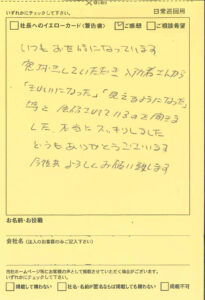 日常巡回用
いずれかにチェックして下さい。
社長へのイエローカード(警告書) ご感想 ご相談希望
いつもお世話になっています
していただき 入所者さんから
「きれいになった」「使えるようになった」
等と 聞きま
した 本当に スッキリしました
どうもありがとうございます
今後共 よろしくお願い致します
お名前・お役職
会社名 (法人のお客様のみご記入下さい)
当社ホームページ等にお客様の声として掲載させていただく場合がございます。
いずれかにチェックして下さい。
掲載して構わない 社名・名前が匿名ならば掲載しても構わない 掲載不可